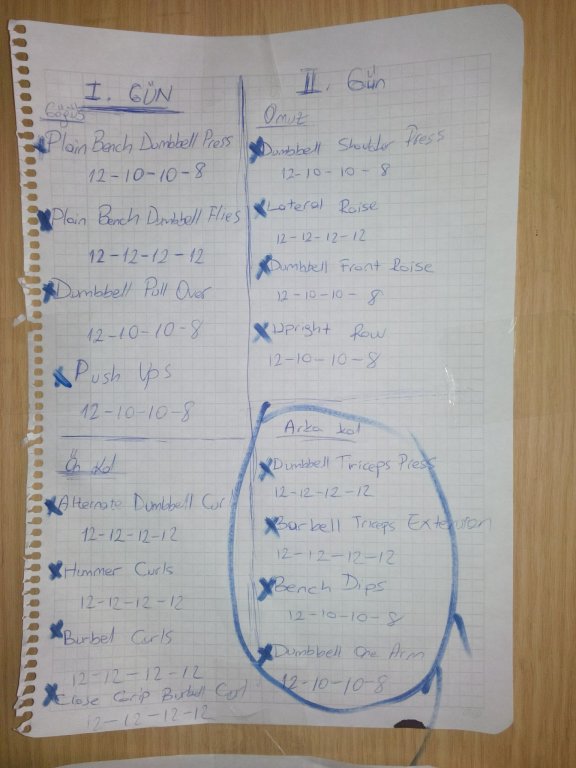 I. GÜN
Göğüs
Plain Bench Dumbbell Press
12-10-10-8
Plain Bench Dumbbell Flies
12-12-12-12
Dumbbell Pull Over
12-10-10-8
Push Ups
12-10-10-8
Ön Kol
Alternate Dumbbell Curl
12-12-12-12
Hummer Curls
12-12-12-12
Burbel Curls
12-12-12-12
Close Grip Burbell Curl
12-12-12-12
II. Gün
Omuz
Dumbbell Shoulder Press
12-10-10-8
Lateral Raise
12-12-12-12
Dumbbell Front Raise
12-10-10-8
Upright Row
12-10-10-8
Arka kol
Dumbbell Triceps Press
12-12-12-12
Burbell Triceps Extension
12-12-12-12
Bench Dips
12-10-10-8
Dumbbell One Arm
12-10-10-8